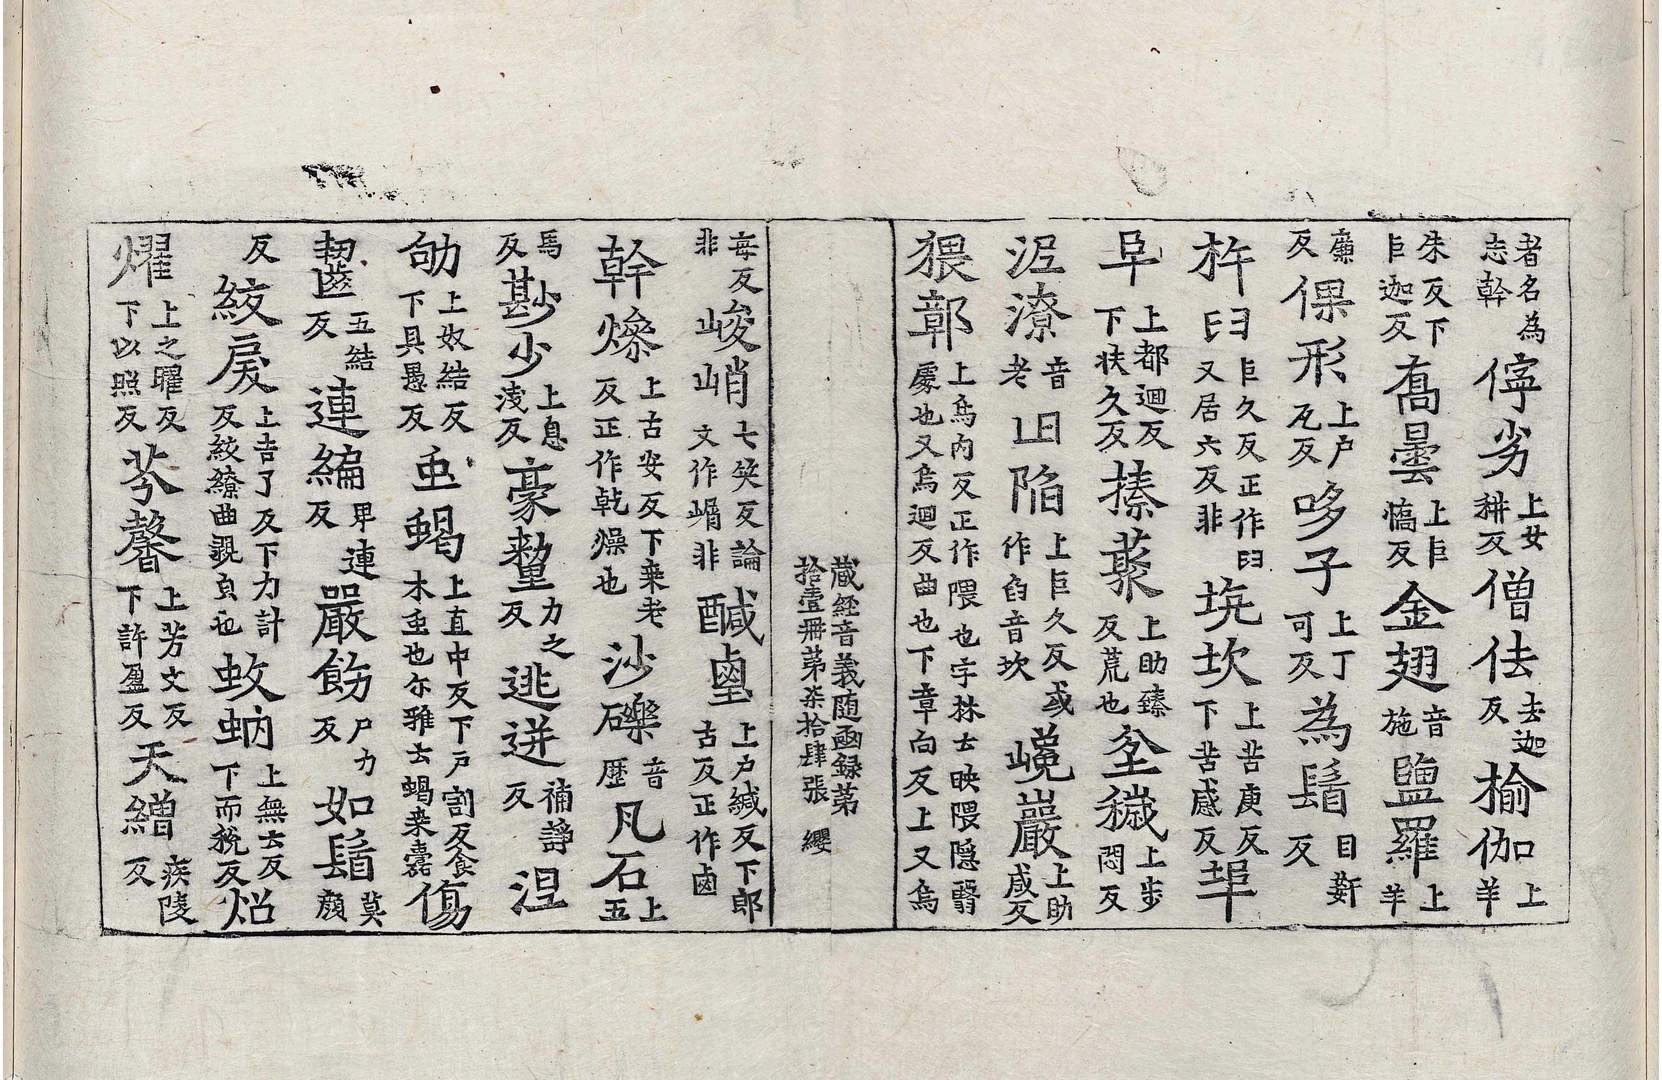 者名為志幹儜劣上女耕反僧佉去迦反揄伽上羊
朱反下巨迦反喬曇上巨憍反金翅音施盬羅上羊
廉反倮形上户瓦反哆子上丁可反為鬅目斬反
杵臼巨久反正作臼又居六反非坑坎上苦庚反下苦感反埠
阜上都迴反下扶久反搸藂上助臻反荒也坌穢上步悶反
泥潦音老臽陷上巨久反或作臽音坎巉巖上助咸反
猥鄣上烏內反正作隈也字林云映隈隱翳處也又烏迴反曲也下章向反上又烏
藏経音義随函録第拾壹冊第柒拾肆張 纓
每反非峻峭七笑反論文作嵋非醎鹵上户緘反下郎古反正作鹵
幹燥上古安反下桒老反正作乾燥也沙礫音歷凡石上五
馬反尠少上息淺反豪釐力之反逃迸補諍反涅
劬上奴結反下具愚反䖝蝎上直中反下户割反食木䖝也尔雅云蝎桒蠹傷
齧五結反連編早連反嚴飭尸力反如鬅莫顏
反絞戾上吉了反下力計反絞繚曲覭皃也蚊蚋上無云反下而稅反炤
燿上之曜反下以照反芬馨上芳文反下許盈反天繒疾陵反